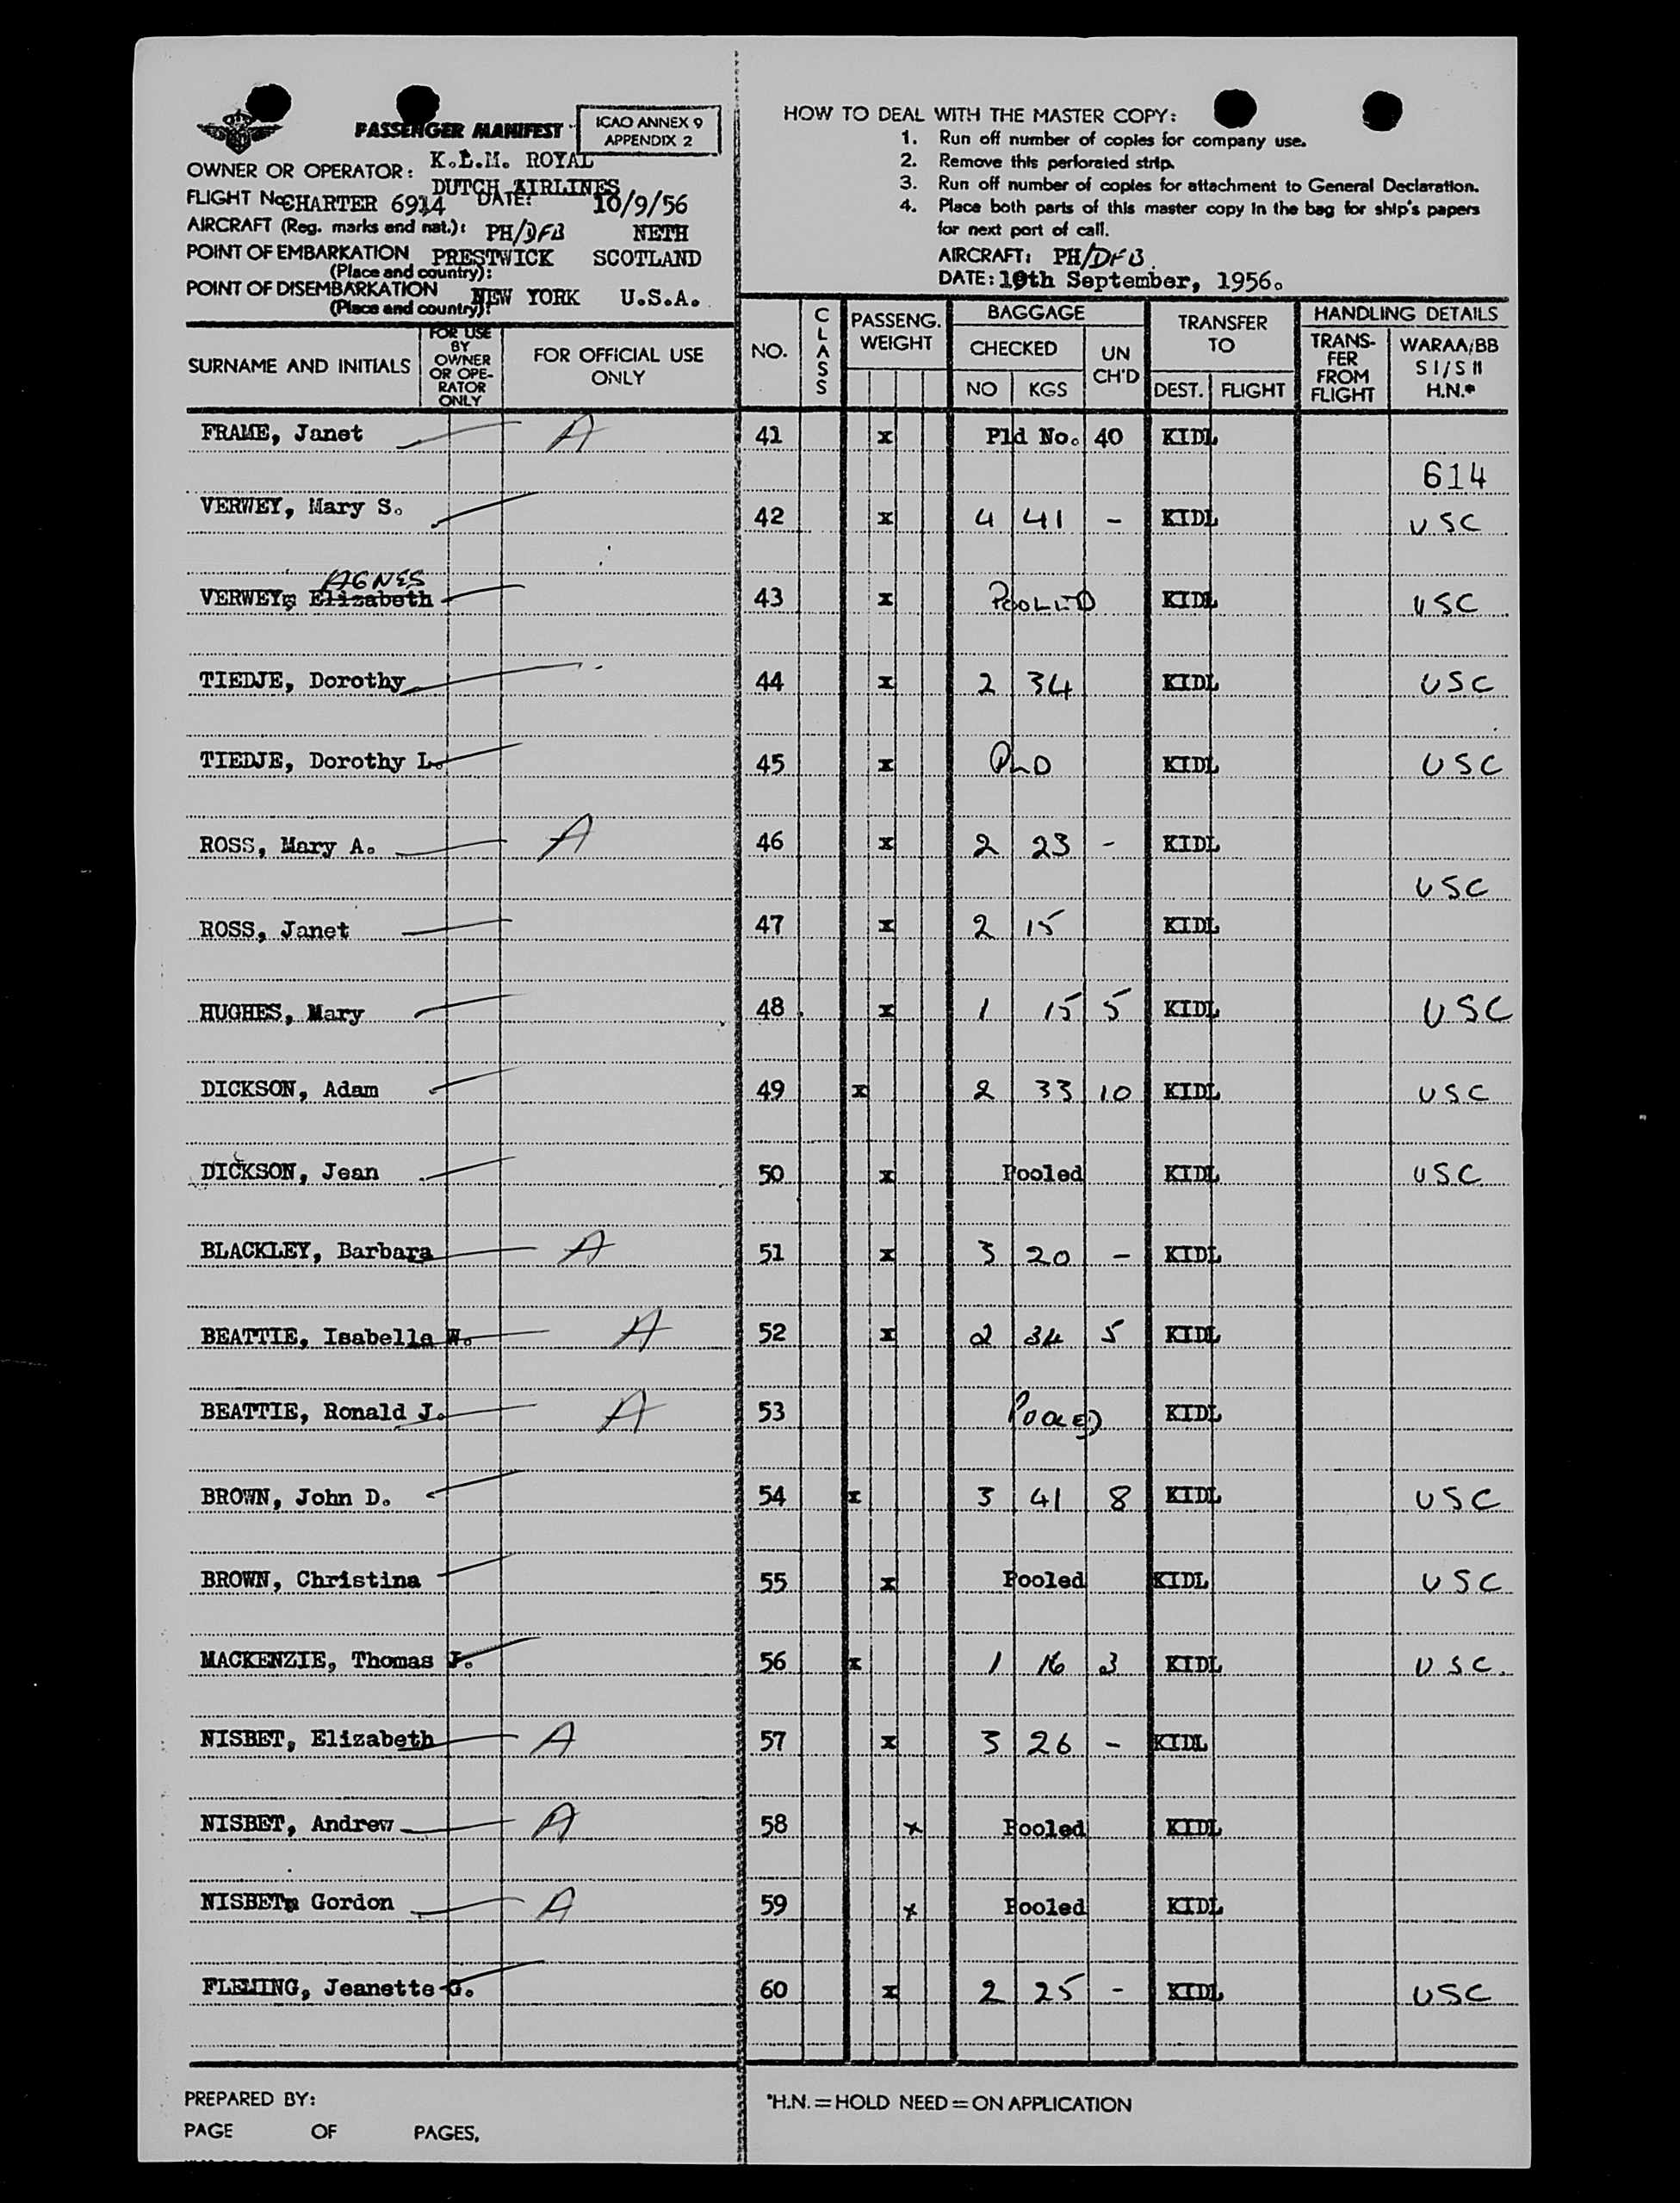 PASSENGER MANIFEST
ICAO ANNEX 9
APPENDIX 2
OWNER OR OPERATOR: K.L.M. ROYAL
DUTCH AIRLINES
FLIGHT No CHARTER 6914 DATE: 10/9/56
AIRCRAFT (Reg. marks and nat.): PH/DFB NETH
POINT OF EMBARKATION PRESTWICK SCOTLAND
(Place and country):
POINT OF DISEMBARKATION NEW YORK U.S.A.
(Place and country):
HOW TO DEAL WITH THE MASTER COPY:
1. Run off number of copies for company use.
2. Remove this perforated strip.
3. Run off number of copies for attachment to General Declaration.
4. Place both parts of this master copy in the bag for ship's papers
for next port of call.
AIRCRAFT: PH/DFB.
DATE: 10th September, 1956.
SURNAME AND INITIALS
FOR USE
BY
OWNER
OR OPE-
RATOR
ONLY
FOR OFFICIAL USE
ONLY
NO.
CLASS
PASSENG.
WEIGHT
BAGGAGE
CHECKED
NO KGS
UN
CH'D
TRANSFER
TO
DEST. FLIGHT
HANDLING DETAILS
TRANS-
FER
FROM
FLIGHT
WARAA/BB
S I/S II
H.N.*
FRAME, Janet A 41 x Pld No. 40 KIDL
614
VERWEY, Mary S. 42 x 4 41 - KIDL USC
AGNES
VERWEY, Elizabeth 43 x POOLED KIDL USC
TIEDJE, Dorothy 44 x 2 34 KIDL USC
TIEDJE, Dorothy L. 45 x PLD KIDL USC
ROSS, Mary A. A 46 x 2 23 - KIDL
USC
ROSS, Janet 47 x 2 15 KIDL
HUGHES, Mary 48 x 1 15 5 KIDL USC
DICKSON, Adam 49 x 2 33 10 KIDL USC
DICKSON, Jean 50 x Pooled KIDL USC
BLACKLEY, Barbara A 51 x 3 20 - KIDL
BEATTIE, Isabella W. A 52 x 2 34 5 KIDL
BEATTIE, Ronald J. A 53 POOLED KIDL
BROWN, John D. 54 x 3 41 8 KIDL USC
BROWN, Christina 55 x Pooled KIDL USC
MACKENZIE, Thomas J. 56 x 1 16 3 KIDL USC.
NISBET, Elizabeth A 57 x 3 26 - KIDL
NISBET, Andrew A 58 x Pooled KIDL
NISBET, Gordon A 59 x Pooled KIDL
FLEMING, Jeanette G. 60 x 2 25 - KIDL USC
PREPARED BY:
PAGE OF PAGES.
*H.N. = HOLD NEED = ON APPLICATION